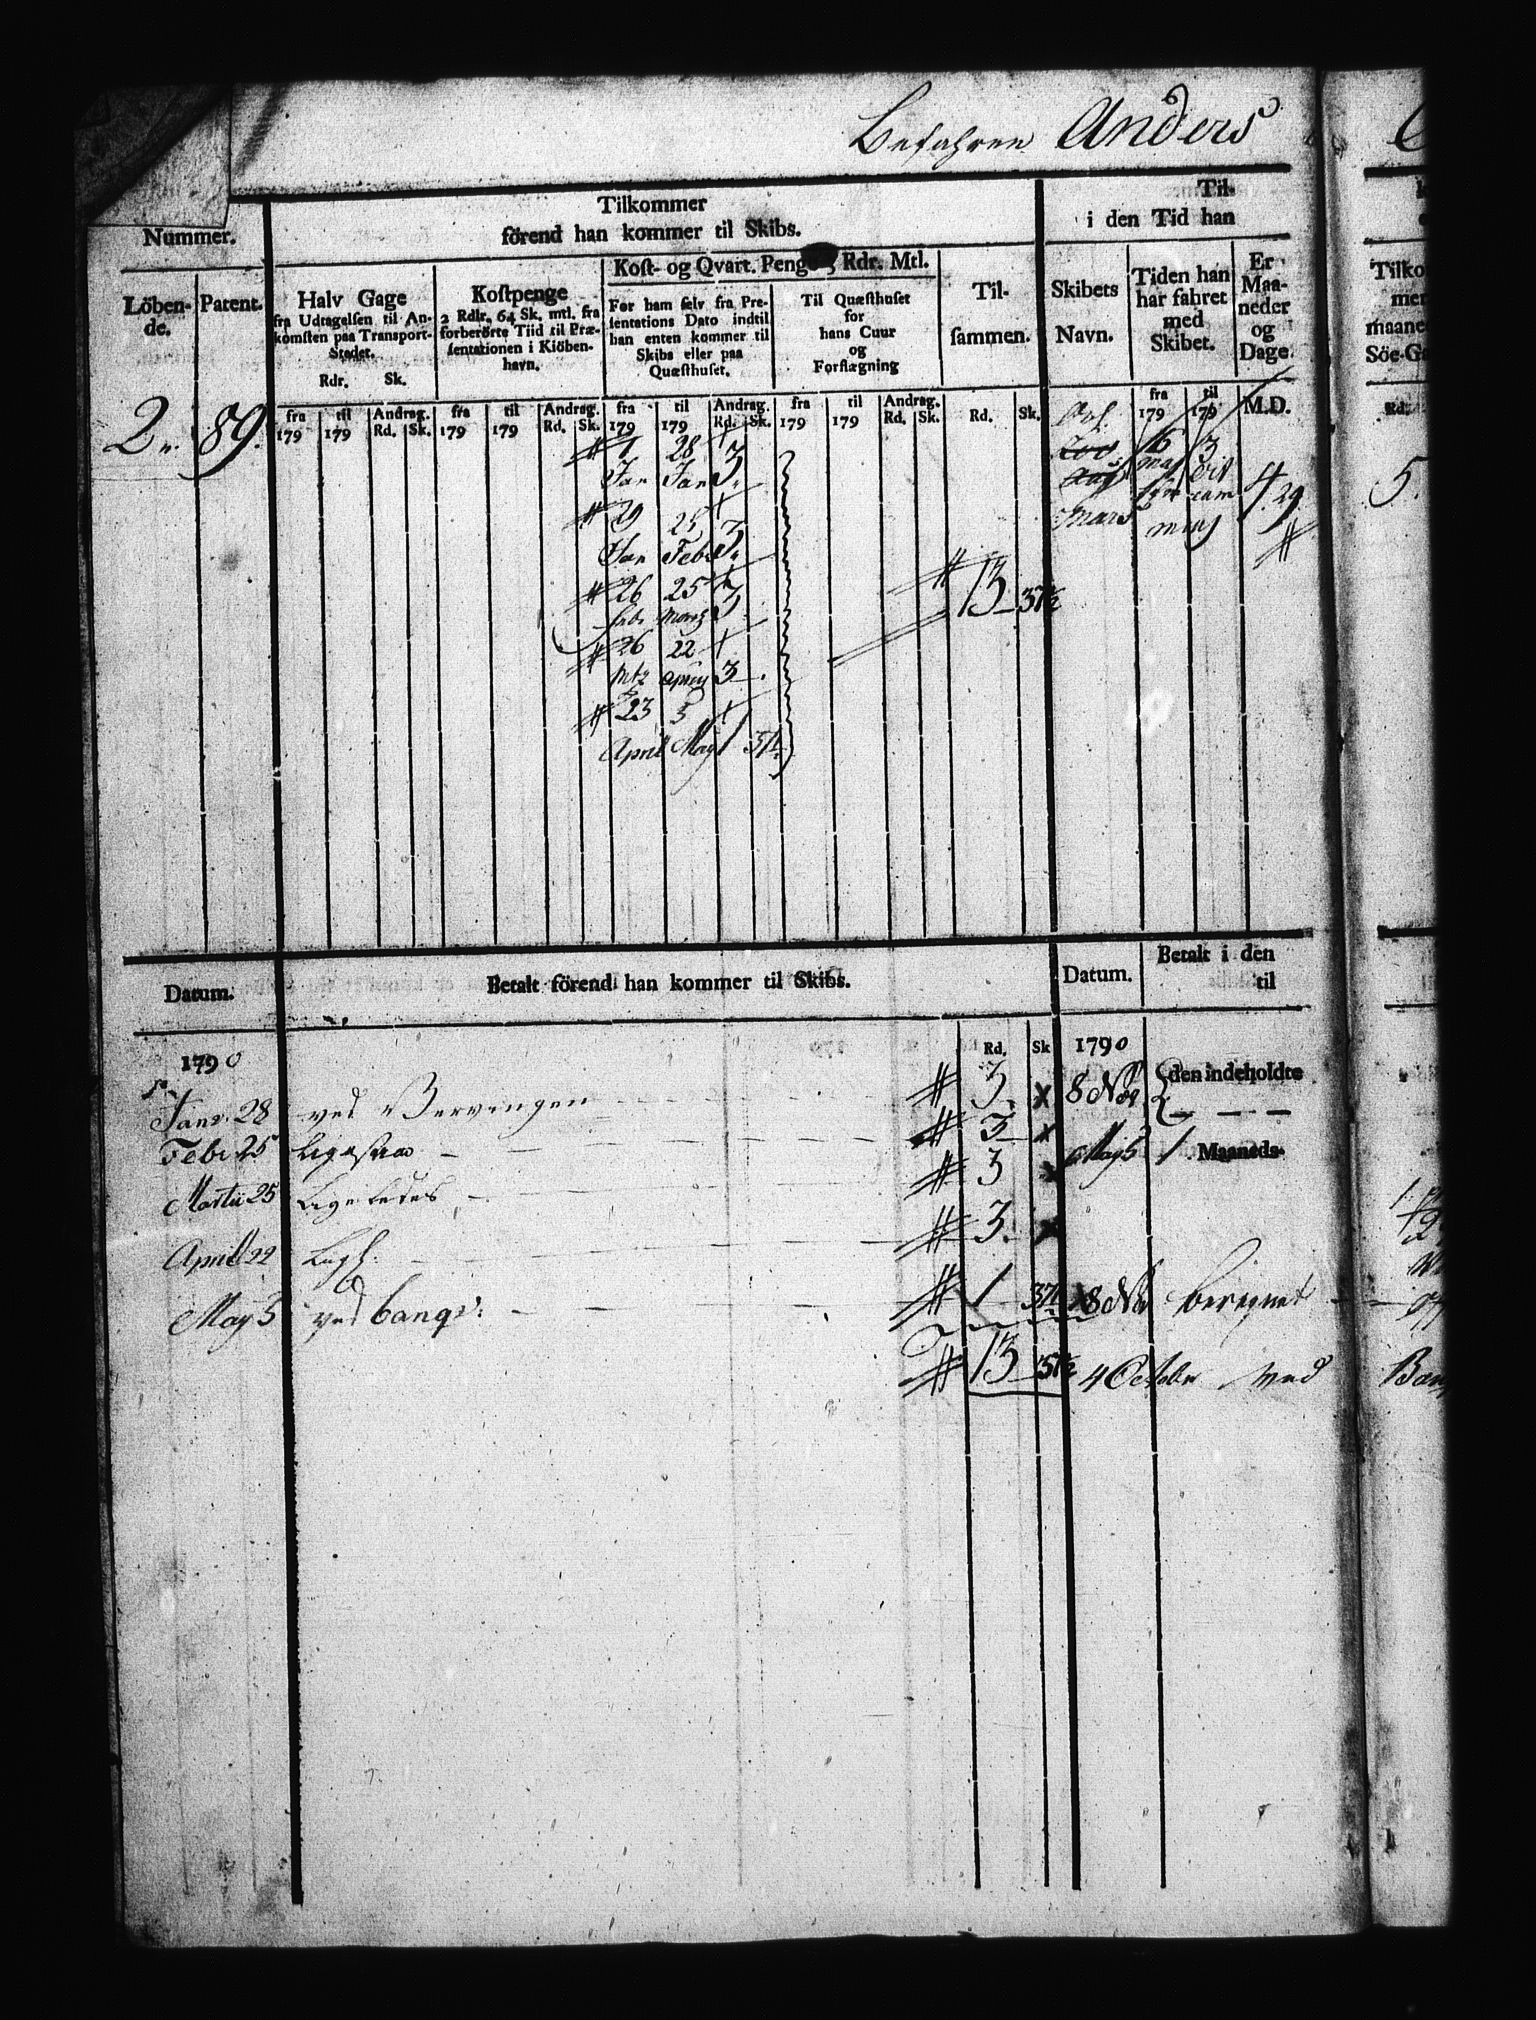 Befahren Anders
Nummer.
Löben-
de.
Patent.
Tilkommer
förend han kommer til Skibs.
Halv Gage
fra Udtagelsen til An-
komsten paa Transport-
Stedet.
Rdr. Sk.
Kostpenge
2 Rdlr. 64 Sk. mtl. fra
forberörte Tiid til Præ-
sentationen i Kiöben-
havn.
Kost- og Qvart. Penge 3 Rdr. Mtl.
For ham selv fra Pre-
sentations Dato indtil
han enten kommer til
Skibs eller paa
Quæsthuset.
Til Quæsthuset
for
hans Cuur
og
Forflægning
Til-
sammen.
Til-
i den Tid han
Skibets
Navn.
Tiden han
har fahret
med
Skibet.
Er
Maa-
neder
og
Dage.
Tilko
mer
maane
Söe-Ga
Rd.
fra til Andrag. fra til Andrag. fra til Andrag. fra til Andrag. fra til
179 179 Rd. Sk. 179 179 Rd. Sk. 179 179 Rd. Sk. 179 179 Rd. Sk. Rd. Sk. 179 179 M.D.
2. 89.
1 28
Jan Jan 3.
29 25
Jan Feb 3.
26 25
Febr Martz 3.
26 22
Mtz April 3
23 5
April May 1 37½
13 37½
16 3
4. 29
5.
Datum.
Betalt förend han kommer til Skibs.
Datum.
Betalt i den
til
1790
Rd. Sk
1790
Janr. 28 ved Vervingen 3
8 Nov den indeholdte
Febr 25 Ligesaa 3
May 5 1 Maaneds-
Martii 25 Ligeledes 3
April 22 Ligl. 3.
May 5 ved banqv: 1 37½
8 Nov beregnet
13 37½
4 October ved